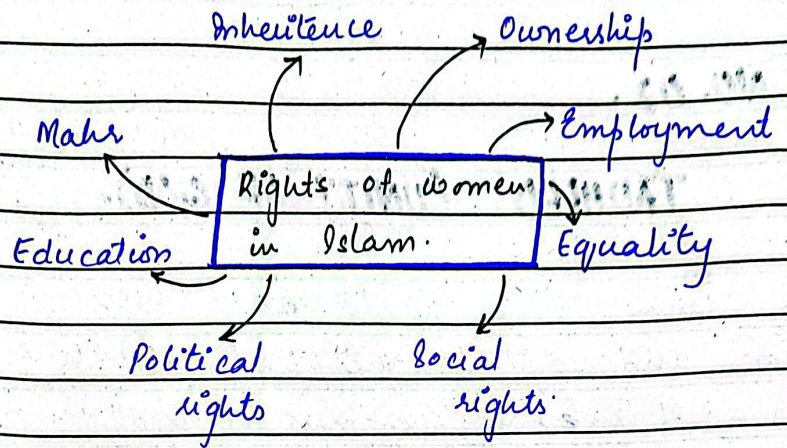 Inheritence
Ownership
Mahr
Employment
Rights of women
in Islam.
Education
Equality
Political
rights
Social
rights.